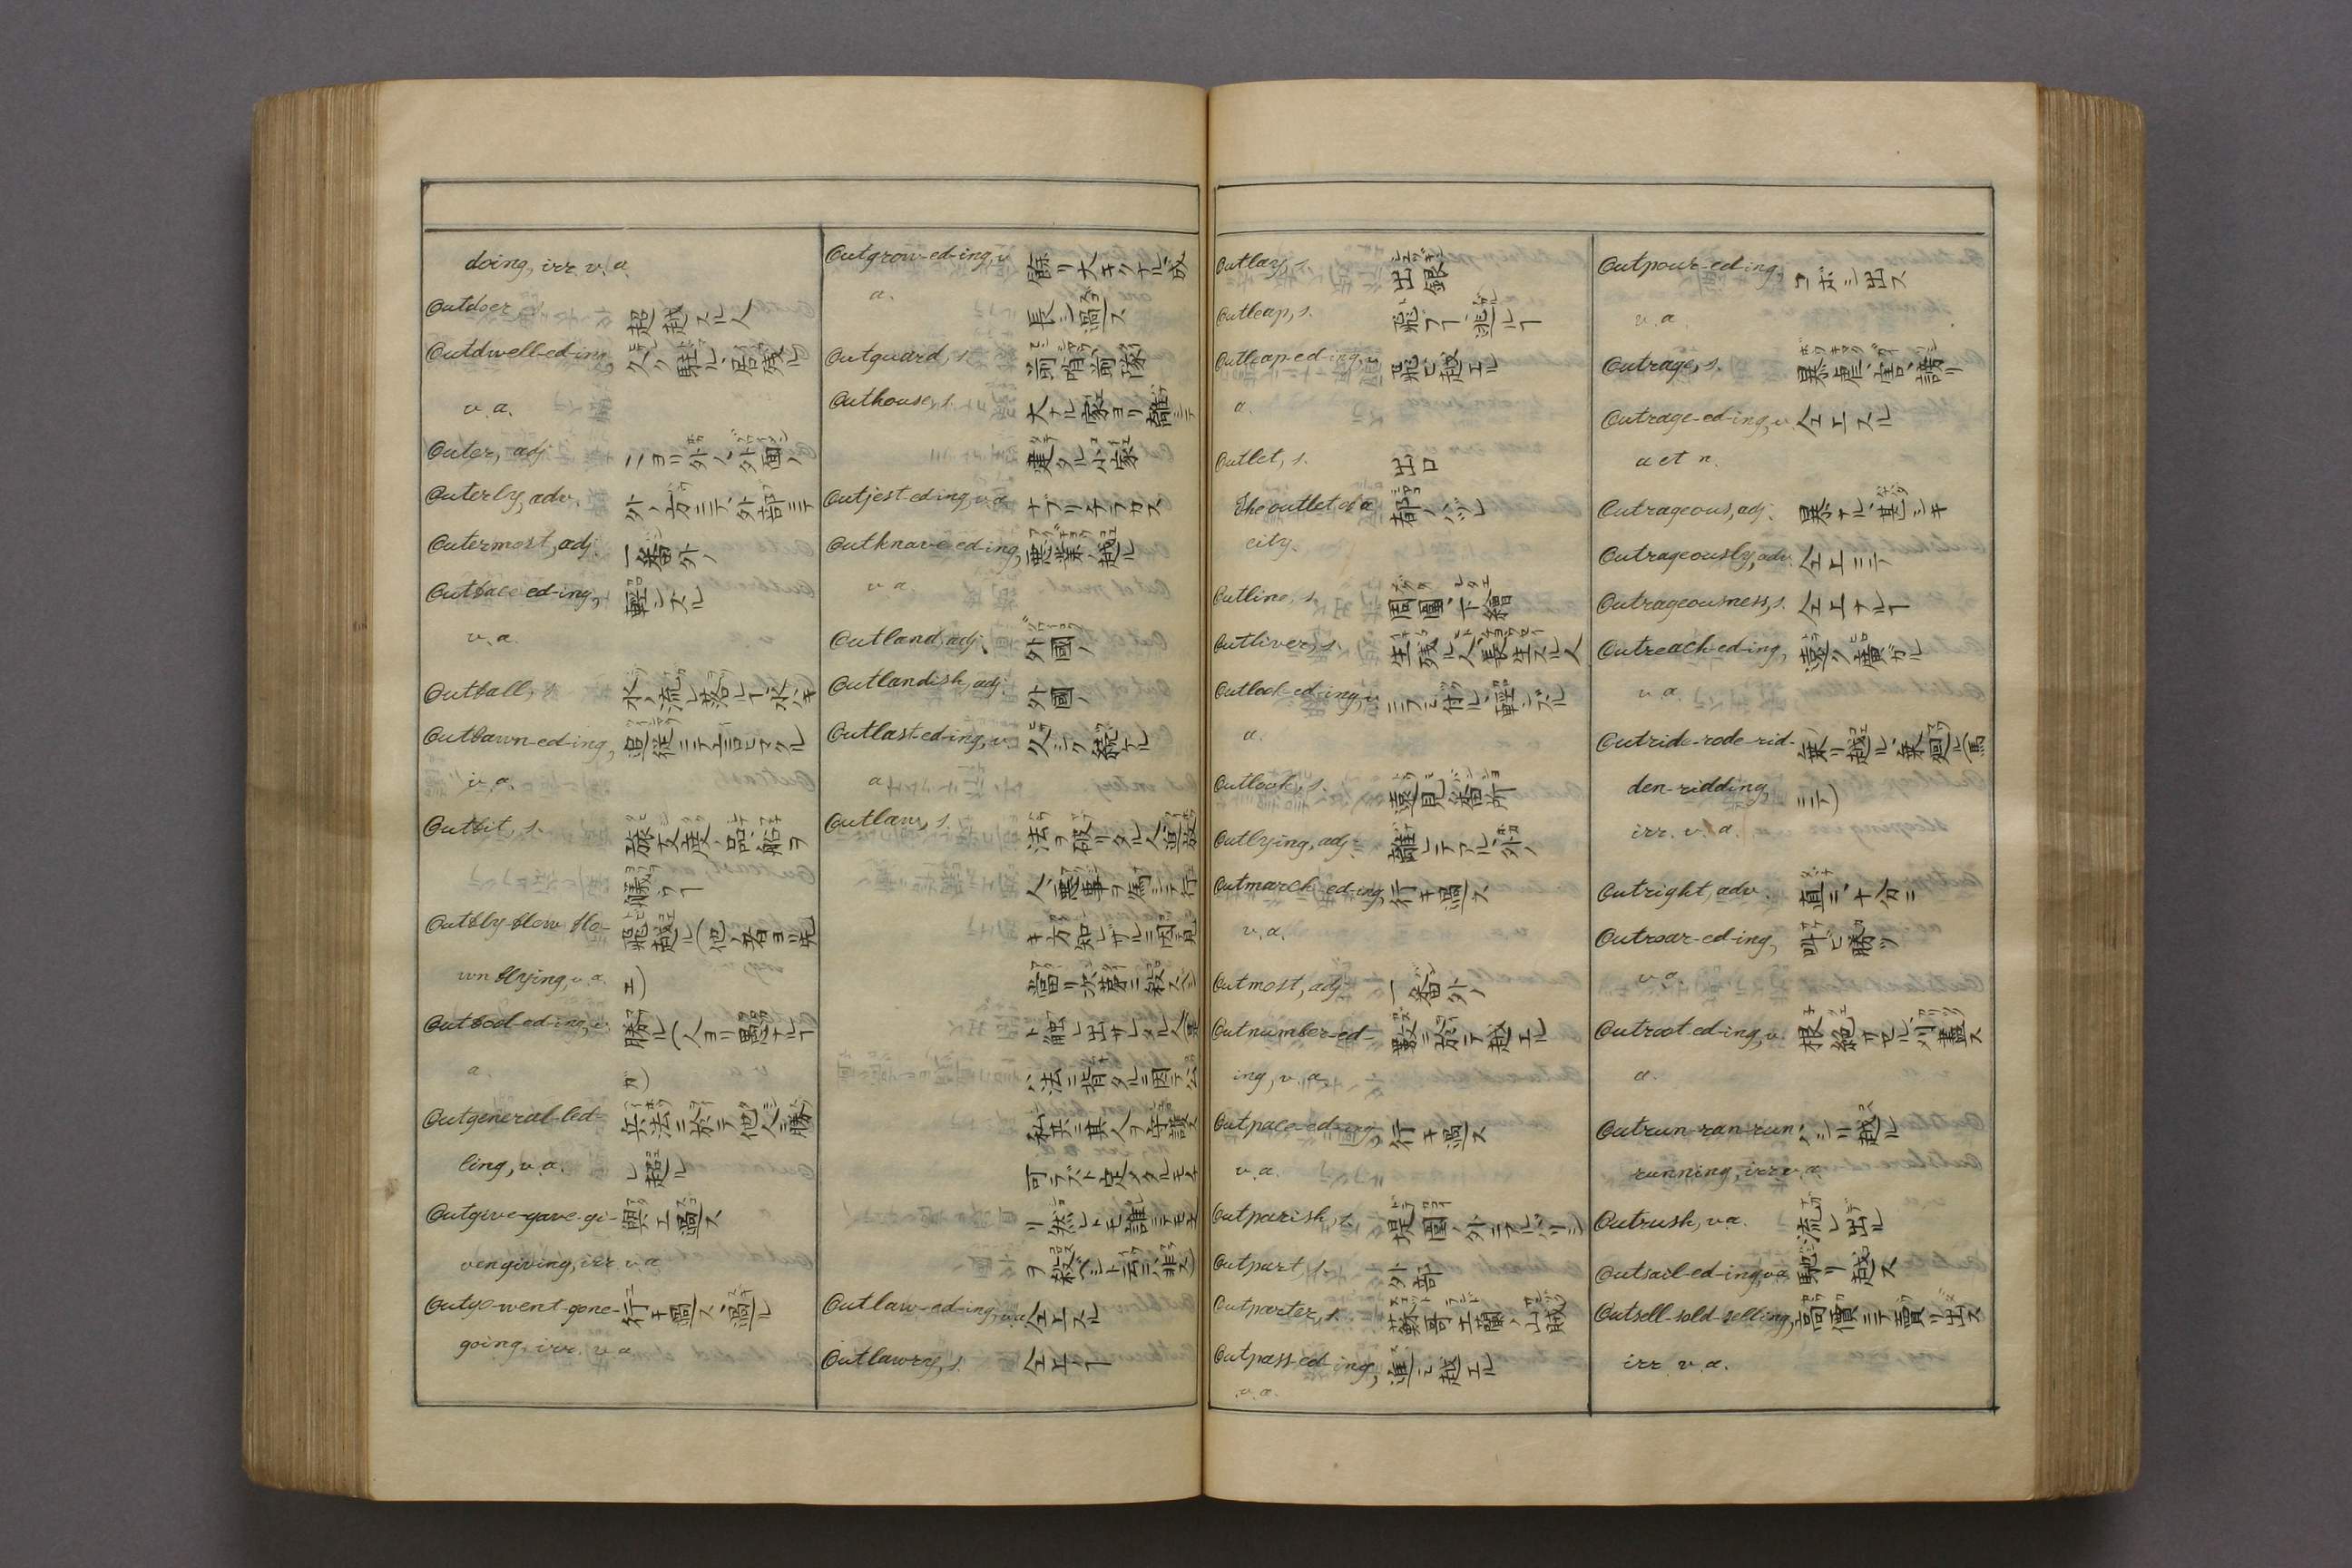 doing, irr. v. a.
Outdoer 超越スル人
Outdwell-ed-ing, 久ク駐ル、居残ル
v. a.
Outer, adj. ニヨリ外ノ、外面ノ
Outerly, adv. 外ノ方ニテ、外部ニテ
Outermost, adj. 一番外ノ
Outface-ed-ing, 軽ンズル
v. a.
Outfall, s. 水ノ流レ落レ
Outfawn-ed-ing, 追従ニテ言ヒマクル
v. a.
Outfit, s. 旅支度、船ヲ
艤フ
Outfly-flew-flo- 飛越ル(他ノ者ヨリ先
wn-flying, v. a. エ)
Outfool-ed-ing, v. 勝ル(人ヨリ愚ナルヿ
a. ガ)
Outgeneral-led- 兵法ニ於テ他人ニ勝
ling, v. a. レ超ル
Outgive-gave-gi- 與エ過ス
ven giving, irr. v. a.
Outgo-went-gone- 行キ過ス、過ル
going, irr. v. a.
Outgrow-ed-ing, v. 餘リ大キクナル、成
a. 長シ過ス
Outguard, s. 前哨、前隊
Outhouse, s. 大ナル家ヨリ離シテ
建タル小家
Outjest-ed-ing, v. a. ナブリチラカス
Outknave-ed-ing, 悪業ノ越ル
v. a.
Outland, adj. 外國ノ
Outlandish, adj. 外國ノ
Outlast-ed-ing, v. 久シク続ケル
a.
Outlaw, s. 法ヲ破リタル人、追放
人、悪事ヲ為シテ行
キ方知レザルニ因、見
當リ次第ニ殺スベシ
ト触レ出サレタル人
法ニ背タルニ因テ公
私共ニ其人ヲ守護ス
可ラズト定メタルモノ
リ然レトモ誰ニテモ之
ヲ殺ベシト云ニハ非ズ
Outlaw-ed-ing, v. a. 仝上スル
Outlawry, s. 仝上ノヿ
Outlay, s. 出銀
Outleap, s. 飛フヿ、逃ルヿ
Outleap-ed-ing, v. 飛ビ越エル
a.
Outlet, s. 出口
The outlet of a 都ノハヅレ
city.
Outline, s. 周圍、下繪
Outliver, s. 生残ル人、長生スル人
Outlook-ed-ing, v. ニラミ付ル、軽ンズル
a.
Outlook, s. 遠見番所
Outlying, adj. 離レテアル、外ノ
Outmarch-ed-ing, 行キ過ス
v. a.
Outmost, adj. 一番外ノ
Outnumber-ed- 数ニ於テ越エル
ing, v. a.
Outpace-ed-ing, 行キ過ス
v. a.
Outparish, s. 堤圍ノ外ニアル
Outpart, s. 外部
Outparter, s. 蘇哥土蘭ノ山賊
Outpass-ed-ing, 進ミ越エル
v. a.
Outpour-ed-ing, コボシ出ス
v. a.
Outrage, s. 暴虐、害、誹リ
Outrage-ed-ing, v. 仝上スル
a et n.
Outrageous, adj. 暴ナル、甚シキ
Outrageously, adv. 仝上ニテ
Outrageousness, s. 仝上ナルヿ
Outreach-ed-ing, 遠ク廣ガル
v. a.
Outride-rode-rid- 乗リ越ル、乗廻ル(馬
den-ridding, ニテ)
irr. v. a.
Outright, adv. 直ニ、十分ニ
Outroar-ed-ing, 叫ビ勝ツ
v. a.
Outroot-ed-ing, v. 根絶ヤセル、刈盡ス
a.
Outrun-ran-run- ハシリ越ル
running, irr. v. a.
Outrush, v. a. 流レ出ル
Outsail-ed-ing, v. a. 馳リ越ス
Outsell-sold-selling, 高價ニテ賣リ出ス
irr. v. a.